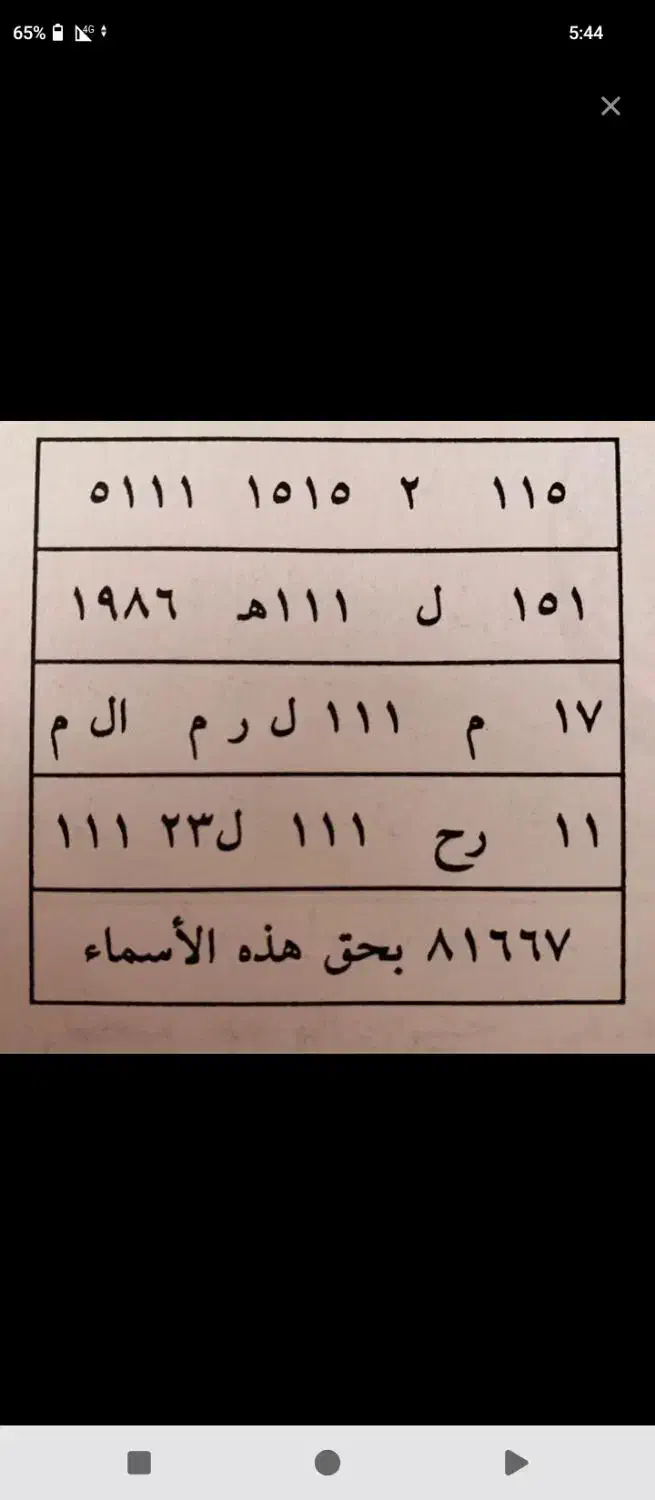 65% 4G 5:44
١١٥ ٢ ١٥١٥ ٥١١١
١٥١ ل ١١١هـ ١٩٨٦
١٧ م ١١١ ل ر م ال م
١١ رح ١١١ ل٢٣ ١١١
٨١٦٦٧ بحق هذه الأسماء